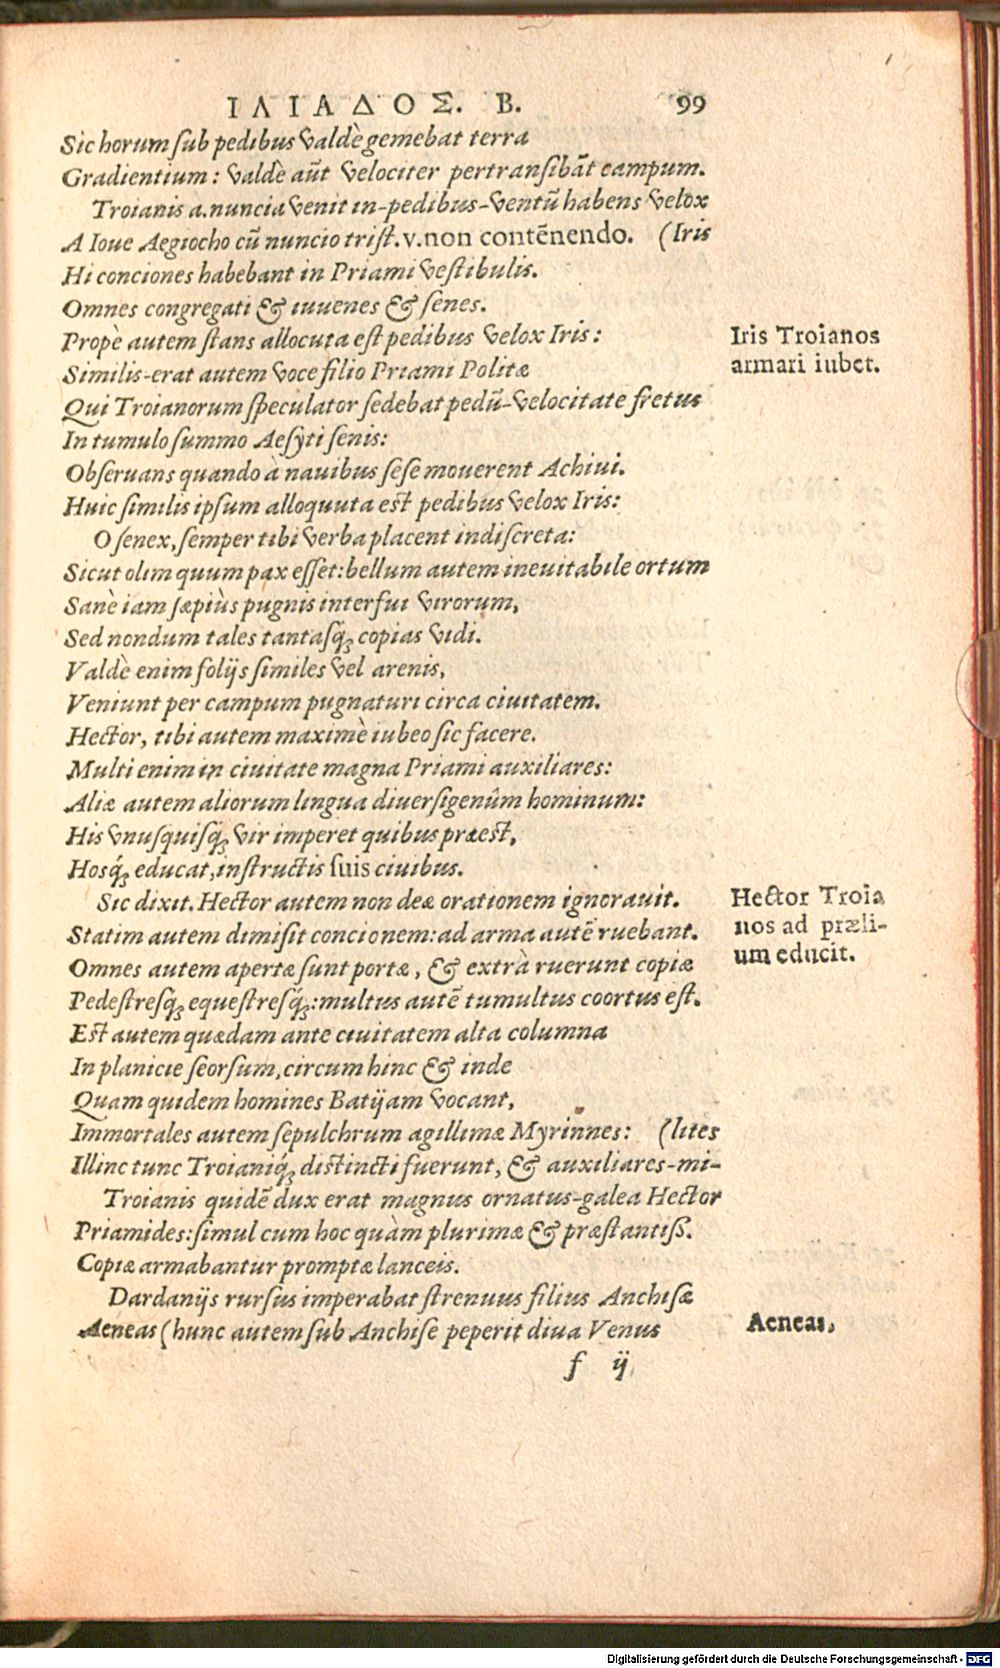 ΙΛΙΑΔΟΣ. Β. 99
Sic horum sub pedibus valdè gemebat terra
Gradientium: valdè aūt velociter pertransibāt campum.
Troianis a. nuncia venit in-pedibus-ventū habens velox
A Ioue Aegiocho cū nuncio trist. v. non contēnendo. (Iris
Hi conciones habebant in Priami vestibulis.
Omnes congregati & iuuenes & senes.
Propè autem stans allocuta est pedibus velox Iris:
Similis-erat autem voce filio Priami Politæ
Qui Troianorum speculator sedebat pedū-velocitate fretus
In tumulo summo Aesyti senis:
Obseruans quando à nauibus sese mouerent Achiui.
Huic similis ipsum alloquuta est pedibus velox Iris:
O senex, semper tibi verba placent indiscreta:
Sicut olim quum pax esset: bellum autem ineuitabile ortum
Sanè iam sæpiùs pugnis interfui virorum,
Sed nondum tales tantasq́; copias vidi.
Valdè enim folijs similes vel arenis,
Veniunt per campum pugnaturi circa ciuitatem.
Hector, tibi autem maximè iubeo sic facere.
Multi enim in ciuitate magna Priami auxiliares:
Aliæ autem aliorum lingua diuersigenûm hominum:
His vnusquisq́; vir imperet quibus præest,
Hosq́; educat, instructis suis ciuibus.
Sic dixit. Hector autem non deæ orationem ignorauit.
Statim autem dimisit concionem: ad arma autē ruebant.
Omnes autem apertæ sunt portæ, & extrà ruerunt copiæ
Pedestresq́; equestresq́;: multus autē tumultus coortus est.
Est autem quædam ante ciuitatem alta columna
In planicie seorsum, circum hinc & inde
Quam quidem homines Batijam vocant,
Immortales autem sepulchrum agillimæ Myrinnes: (lites
Illinc tunc Troianiq́; distincti fuerunt, & auxiliares-mi-
Troianis quidē dux erat magnus ornatus-galea Hector
Priamides: simul cum hoc quàm plurimæ & præstantiss.
Copiæ armabantur promptæ lanceis.
Dardanijs rursus imperabat strenuus filius Anchisæ
Aeneas (hunc autem sub Anchise peperit diua Venus
f ij
Iris Troianos
armari iubet.
Hector Troia
nos ad præli-
um educit.
Aeneas,
Digitalisierung gefördert durch die Deutsche Forschungsgemeinschaft - DFG